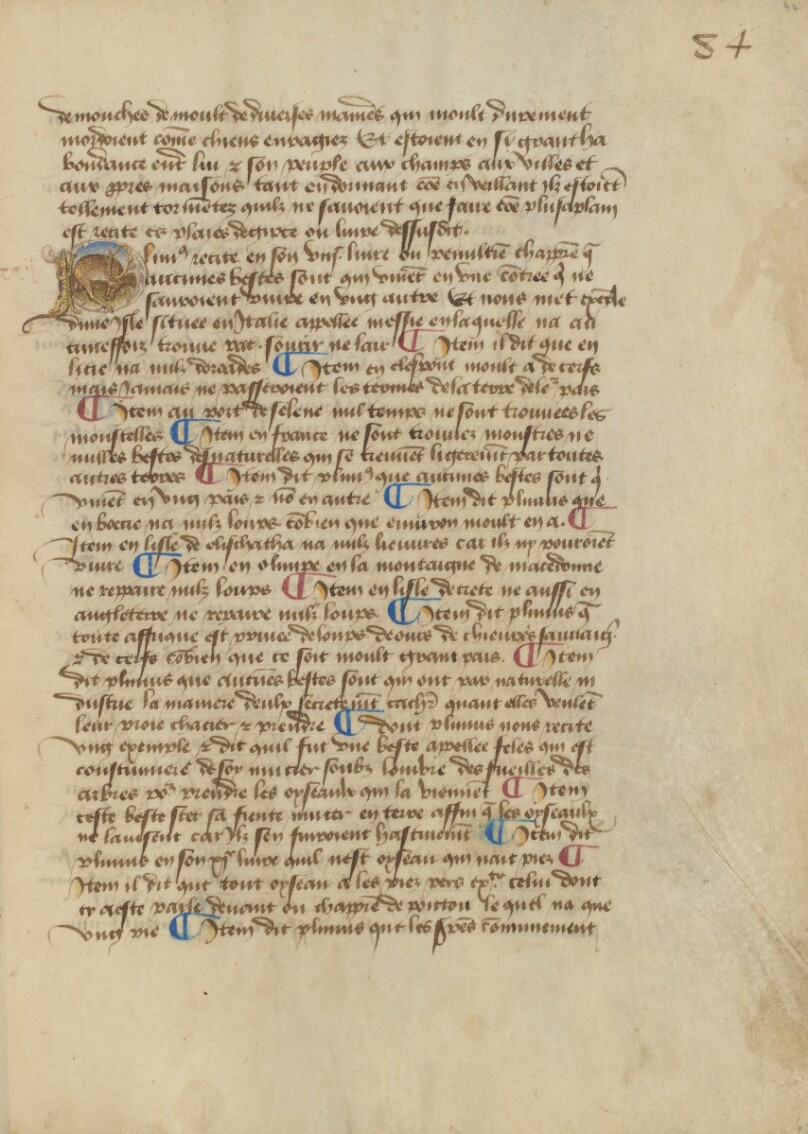 84
de mouches de moult de diverses manieres qui moult durement
mordoient cōme chiens enragiez Et estoient en si grant ha
bondance entre lui ⁊ son peuple aux champs aux villes et
aux ꝓpres maisons tant en dormant cōe en veillant ilz estoiēt
tellement tormētez quilz ne savoient que faire cōe plus a plain
est recite es plaies degipte ou livre dessusdit.
Plinius recite en son livre ou penultiē chapitre q̄
aucunes bestes sont qui vivēt en une cōtree q̄ ne
sauroient vivre en ung autre Et nous met exēple
dune isle situee en Italie appellee messie en laquelle na au
cuneffoiz trouve rat souriz ne lair ¶ Item il dit que en
licie na nulz dorcades ¶ Item en elespont moult a de cerfs
mais jamais ne passeroient les termes de la terre de le pais
¶ Item au port de selene nul temps ne sont trouvees les
moustelles ¶ Item en france ne sont trouvez monstres ne
nulles bestes desnaturelles qui se treuvent ligieremēt par toutes
autres terres ¶ Item dit plinius que aucunes bestes sont q̄
vivēt en ung pais ⁊ nō en autre ¶ Item dit plinius que
en boecie na nulz loups cōbien que environ moult en a. ¶
Item en lisle de na nulz lievres car ilz ny pourroiēt
vivre ¶ Item en olimpe en la montaigne de macedonne
ne repaire nulz loups ¶ Item en lisle de crete ne aussi en
angleterre ne repaire nulz loups ¶ Item dit plinius q̄
toute affrique est privee de loups de ours de chieures sauvaiges
⁊ de cerfs cōbien que ce soit moult grant pais. ¶ Item
dit plinius que aucūes bestes sont qui ont par naturelle in
dustrie la maniere deulx secretemēt cachier quant elles veulēt
leur proie chacier ⁊ prendre ¶ dont plinius nous recite
ung exemple ⁊ dit quil fut une beste appellee feles qui est
coustumiere de soy mucier soubz lombre des fueilles des
arbres pour prendre les oyseaulx qui la viennēt ¶ Item
ceste beste scet sa fiente mucier en terre affin q̄ les oyseaulx
ne lavisent car ilz sen fuiroient hastivemēt ¶ Item dit
plinius en son livre quil nest oyseau qui nait piez ¶
Item il dit que tout oyseau a les piez vers celui dont
cy a este parle devant ou chapitre de le quel na que
ung pie ¶ Item dit plinius que les cōmunement